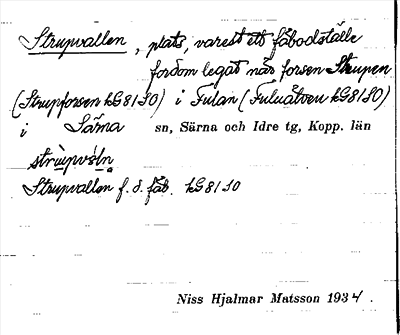 Strupvallen, plats, varest ett fäbodställe
fordom legat när forsen Strupen
(Strupforsen kG8150) i Fulan (Fuluälven kG8150)
i Särna sn, Särna och Idre tg, Kopp. län
Strupvallen f. d. fäb. kG8150
Niss Hjalmar Matsson 1934.